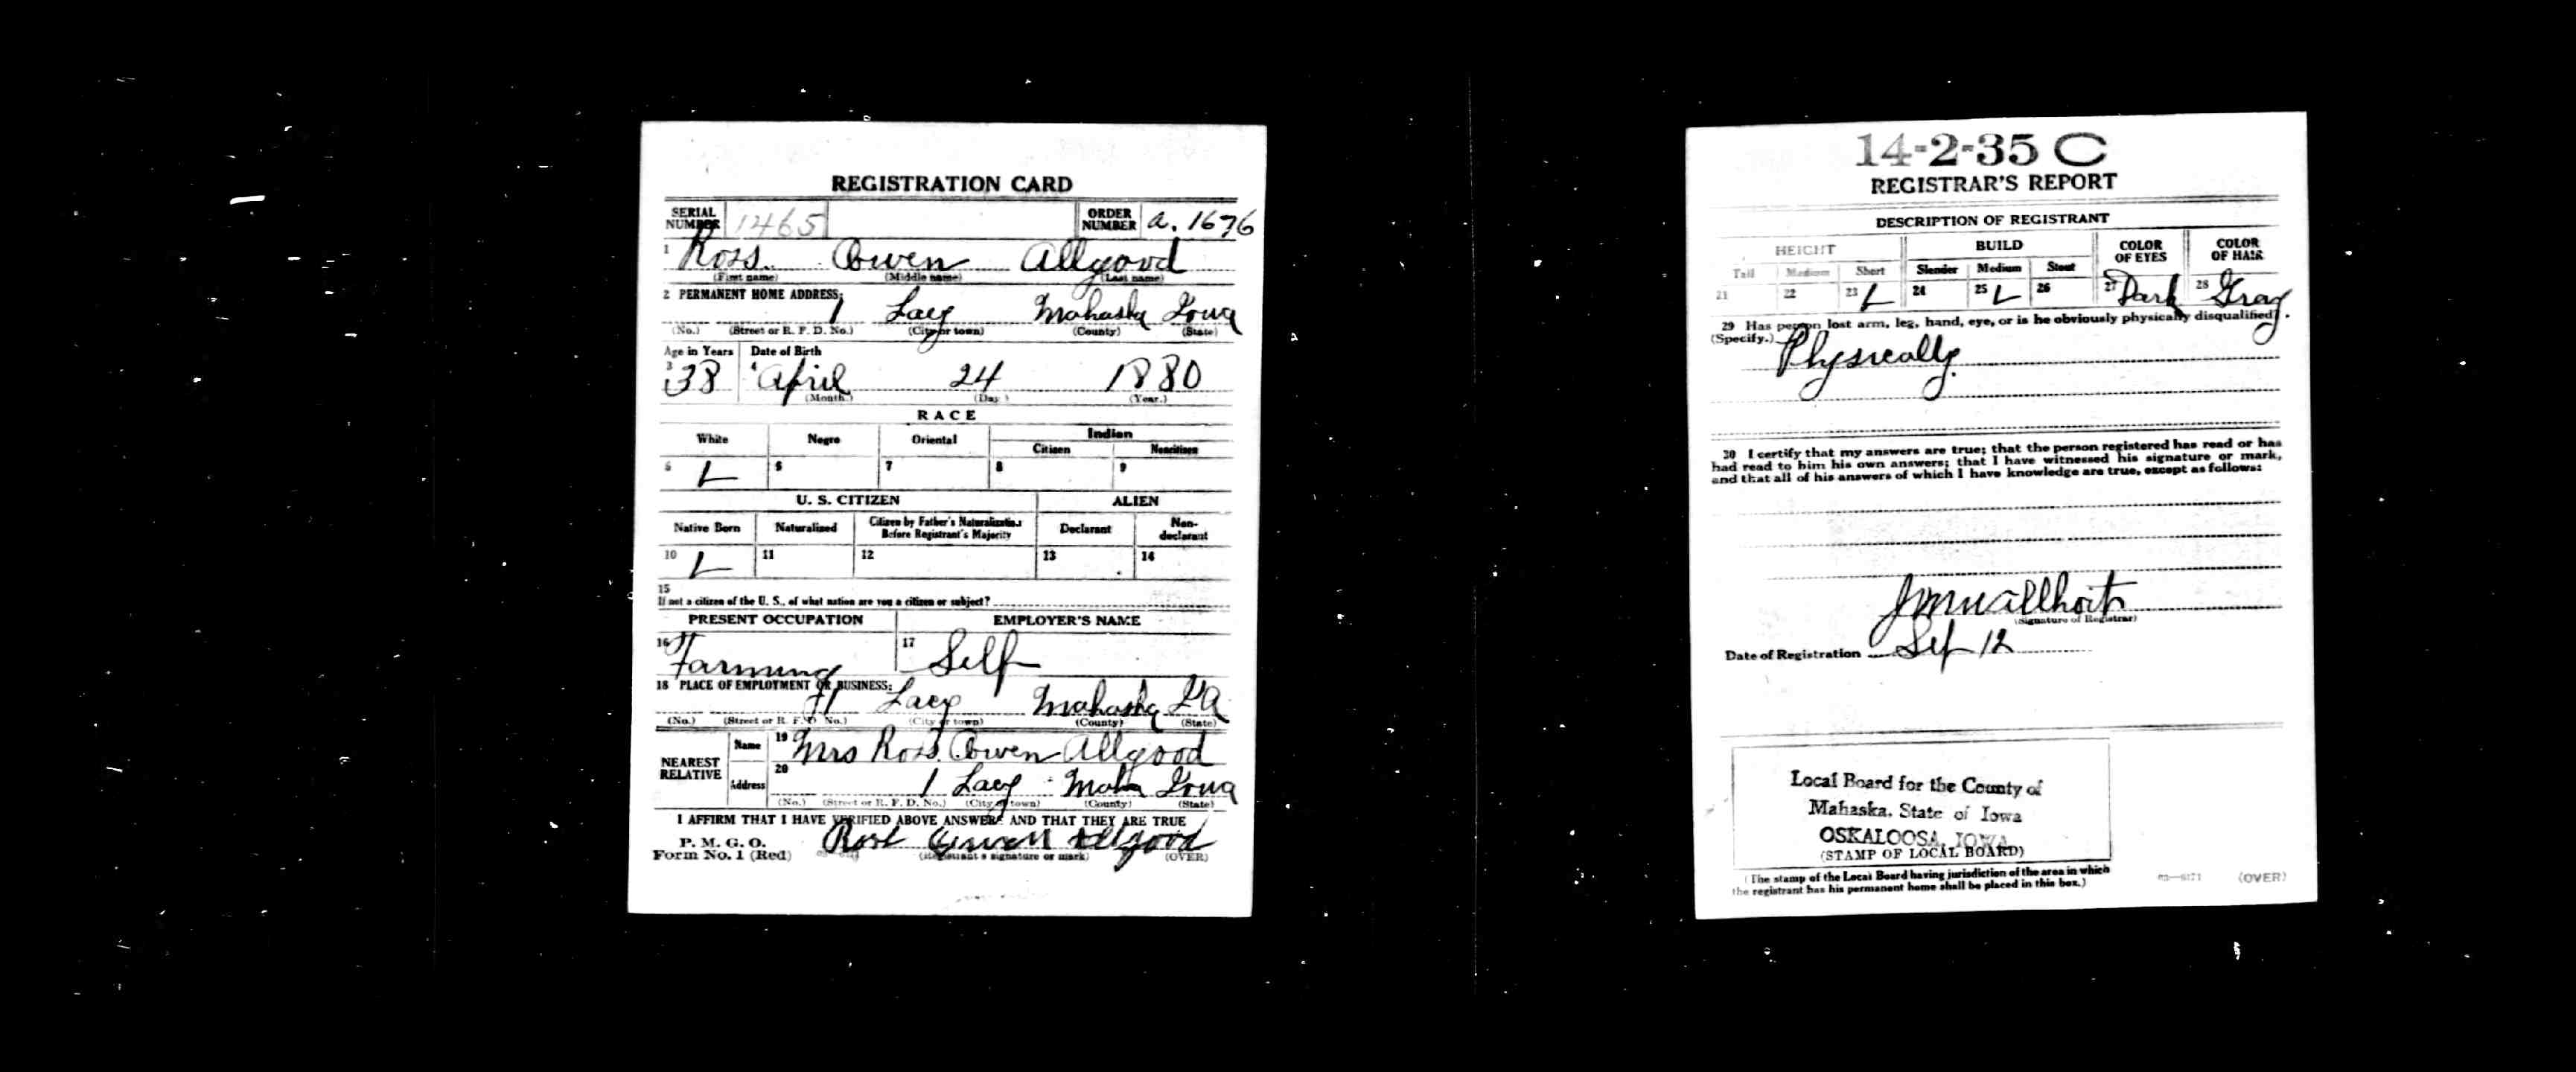 REGISTRATION CARD
SERIAL NUMBER 1465 ORDER NUMBER a. 1676
1 Ross Owen Allgood
(First name) (Middle name) (Last name)
2 PERMANENT HOME ADDRESS:
1 Lacy Mahaska Iowa
(No.) (Street or R. F. D. No.) (City or town) (County) (State)
Age in Years Date of Birth
3 38 4 April 24 1880
(Month.) (Day.) (Year.)
RACE
White Negro Oriental Indian
Citizen Noncitizen
5 L 6 7 8 9
U. S. CITIZEN ALIEN
Native Born Naturalized Citizen by Father's Naturalization Before Registrant's Majority Declarant Non-declarant
10 L 11 12 13 14
15
If not a citizen of the U. S., of what nation are you a citizen or subject?
PRESENT OCCUPATION EMPLOYER'S NAME
16 Farming 17 Self
18 PLACE OF EMPLOYMENT OR BUSINESS:
1 Lacy Mahaska IA
(No.) (Street or R. F. D. No.) (City or town) (County) (State)
NEAREST RELATIVE
Name 19 Mrs Ross Owen Allgood
Address 20 1 Lacy Maha Iowa
(No.) (Street or R. F. D. No.) (City or town) (County) (State)
I AFFIRM THAT I HAVE VERIFIED ABOVE ANSWERS AND THAT THEY ARE TRUE
P. M. G. O.
Form No. 1 (Red) Ross Owen Allgood
(Registrant's signature or mark) (OVER)
14-2-35 C
REGISTRAR'S REPORT
DESCRIPTION OF REGISTRANT
HEIGHT BUILD COLOR OF EYES COLOR OF HAIR
Tall Medium Short Slender Medium Stout
21 22 23 L 24 25 L 26 27 Dark 28 Gray
29 Has person lost arm, leg, hand, eye, or is he obviously physically disqualified?
(Specify.) Physically
30 I certify that my answers are true; that the person registered has read or has
had read to him his own answers; that I have witnessed his signature or mark,
and that all of his answers of which I have knowledge are true, except as follows:
(Signature of Registrar)
Date of Registration Sep 12
Local Board for the County of
Mahaska, State of Iowa
OSKALOOSA, IOWA
(STAMP OF LOCAL BOARD)
(The stamp of the Local Board having jurisdiction of the area in which
the registrant has his permanent home shall be placed in this box.)
(OVER)